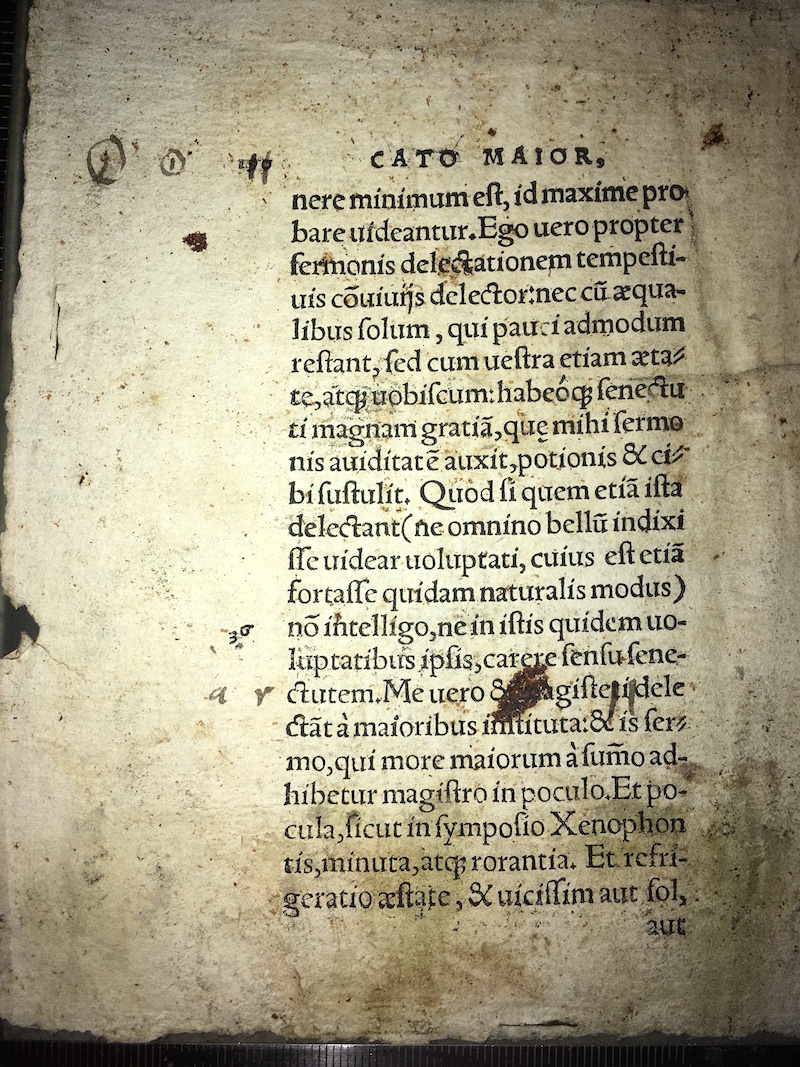 CATO MAIOR,
nere minimum est, id maxime pro
bare uideantur. Ego uero propter
sermonis delectationem tempesti-
uis cōuiuijs delector: nec cū æqua-
libus solum, qui pauci admodum
restant, sed cum uestra etiam æta-
te, atqꝫ uobiscum: habeóqꝫ senectu
ti magnam gratiā, quę mihi sermo
nis auiditatē auxit, potionis & ci-
bi sustulit. Quòd si quem etiā ista
delectant (ne omnino bellū indixi
sse uidear uoluptati, cuius est etiā
fortasse quidam naturalis modus)
nō intelligo, ne in istis quidem uo-
luptatibus ipsis, carere sensu sene-
ctutem. Me uero & magisteria dele
ctāt à maioribus instituta: & is ser-
mo, qui more maiorum à sum̄o ad-
hibetur magistro in poculo. Et po-
cula, sicut in symposio Xenophon
tis, minuta, atqꝫ rorantia. Et refri-
geratio æstate, & uicissim aut sol,
aut